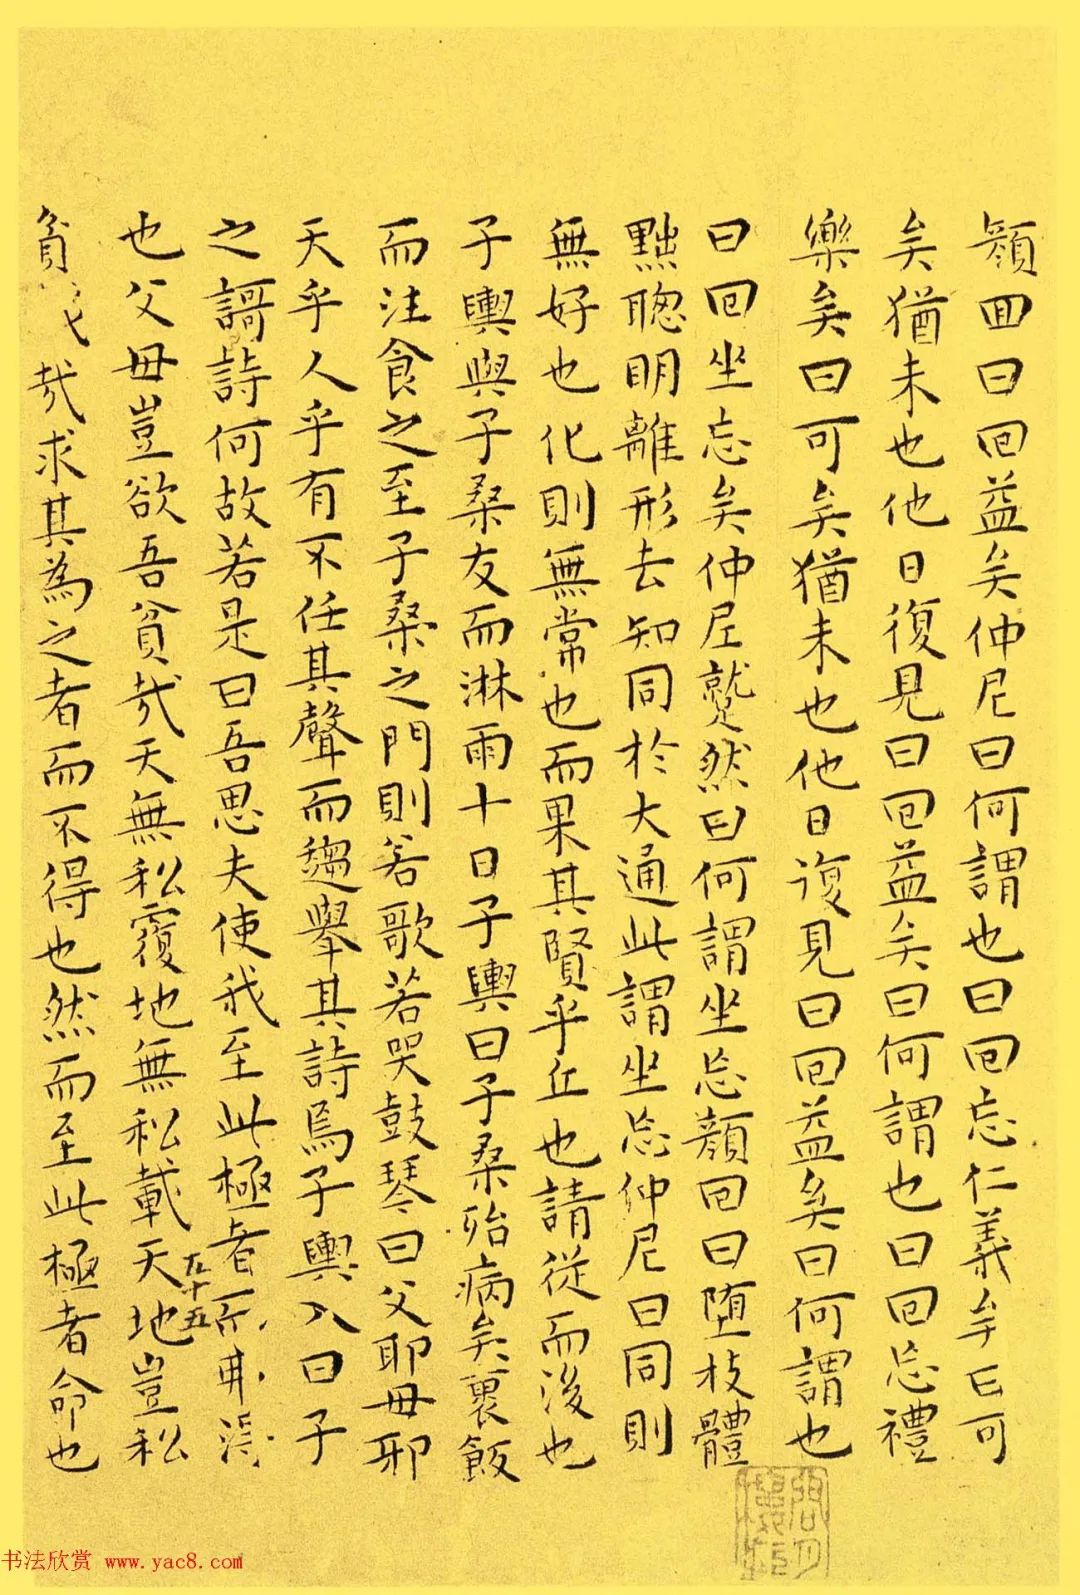 顔回曰回益矣仲尼曰何謂也曰回忘仁義矣曰可
矣猶未也他日復見曰回益矣曰何謂也曰回忘禮
樂矣曰可矣猶未也他日復見曰回益矣曰何謂也
曰回坐忘矣仲尼蹵然曰何謂坐忘顔回曰堕枝體
黜聰明離形去知同於大通此謂坐忘仲尼曰同則
無好也化則無常也而果其賢乎丘也請從而後也
子輿與子桑友而淋雨十日子輿曰子桑殆病矣裹飯
而注食之至子桑之門則若歌若哭鼓琴曰父耶母邪
天乎人乎有不任其聲而趨舉其詩焉子輿入曰子
之謌詩何故若是曰吾思夫使我至此極者而弗得
也父母豈欲吾貧哉天無私覆地無私載天地豈私
貧哉求其為之者而不得也然而至此極者命也
五十五
书法欣赏 www.yac8.com